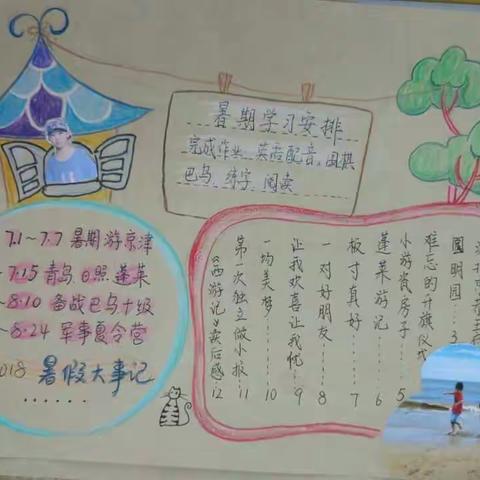 暑期学习安排
完成作业、英语配音、围棋
巴乌、练字、阅读
7.1~7.7 暑期游京津
~7.15 青岛、日照、蓬莱
~8.10 备战巴乌十级
~8.24 军事夏令营
018 暑假大事记
......
圆明园...3
难忘的升旗仪式
小游瓷房子...5
蓬莱游记...6
板寸真好...7
一对好朋友...8
让我欢喜让我忧...9
一场美梦...10
第一次独立做小报...11
《西游记》读后感 12